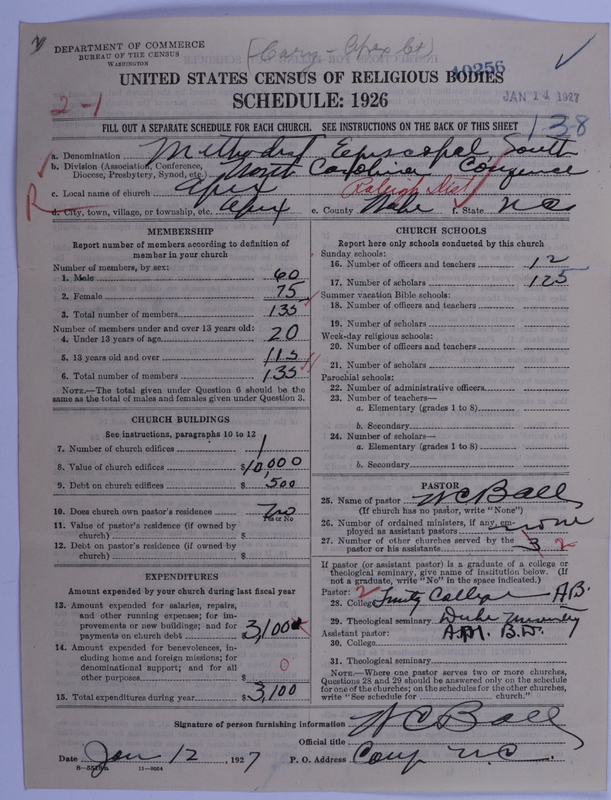 DEPARTMENT OF COMMERCE
BUREAU OF THE CENSUS
WASHINGTON
(Cary - Apex Ct)
40256
UNITED STATES CENSUS OF RELIGIOUS BODIES
SCHEDULE: 1926
JAN 14 1927
2-1
138
FILL OUT A SEPARATE SCHEDULE FOR EACH CHURCH. SEE INSTRUCTIONS ON THE BACK OF THIS SHEET
a. Denomination Methodist Episcopal South
b. Division (Association, Conference, Diocese, Presbytery, Synod, etc.) North Carolina Conference
c. Local name of church Apex Raleigh Dist
R
d. City, town, village, or township, etc. Apex e. County Wake f. State N C
MEMBERSHIP
Report number of members according to definition of
member in your church
Number of members, by sex:
1. Male 60
2. Female 75
3. Total number of members 135
Number of members under and over 13 years old:
4. Under 13 years of age 20
5. 13 years old and over 115
6. Total number of members 135
NOTE.—The total given under Question 6 should be the
same as the total of males and females given under Question 3.
CHURCH BUILDINGS
See instructions, paragraphs 10 to 12
7. Number of church edifices 1
8. Value of church edifices $10,000
9. Debt on church edifices $500
10. Does church own pastor's residence No
Yes or No
11. Value of pastor's residence (if owned by
church) $
12. Debt on pastor's residence (if owned by
church) $
EXPENDITURES
Amount expended by your church during last fiscal year
13. Amount expended for salaries, repairs,
and other running expenses; for im-
provements or new buildings; and for
payments on church debt $3,100
14. Amount expended for benevolences, in-
cluding home and foreign missions; for
denominational support; and for all
other purposes $ 0
15. Total expenditures during year $3,100
CHURCH SCHOOLS
Report here only schools conducted by this church
Sunday schools:
16. Number of officers and teachers 12
17. Number of scholars 125
Summer vacation Bible schools:
18. Number of officers and teachers
19. Number of scholars
Week-day religious schools:
20. Number of officers and teachers
21. Number of scholars
Parochial schools:
22. Number of administrative officers
23. Number of teachers—
a. Elementary (grades 1 to 8)
b. Secondary
24. Number of scholars—
a. Elementary (grades 1 to 8)
b. Secondary
PASTOR
25. Name of pastor W C Ball
(If church has no pastor, write "None")
26. Number of ordained ministers, if any, em-
ployed as assistant pastors none
27. Number of other churches served by the
pastor or his assistants 3 2
If pastor (or assistant pastor) is a graduate of a college or
theological seminary, give name of institution below. (If
not a graduate, write "No" in the space indicated.)
Pastor: 2
28. College Trinity College A.B.
29. Theological seminary Duke University
A.M. B.D.
Assistant pastor:
30. College
31. Theological seminary
NOTE.—Where one pastor serves two or more churches,
Questions 28 and 29 should be answered only on the schedule
for one of the churches; on the schedules for the other churches,
write "See schedule for ........ church."
Signature of person furnishing information W C Ball
Official title
Date Jan 12, 1927 P. O. Address Cary N.C.
8—5518a 11—9054